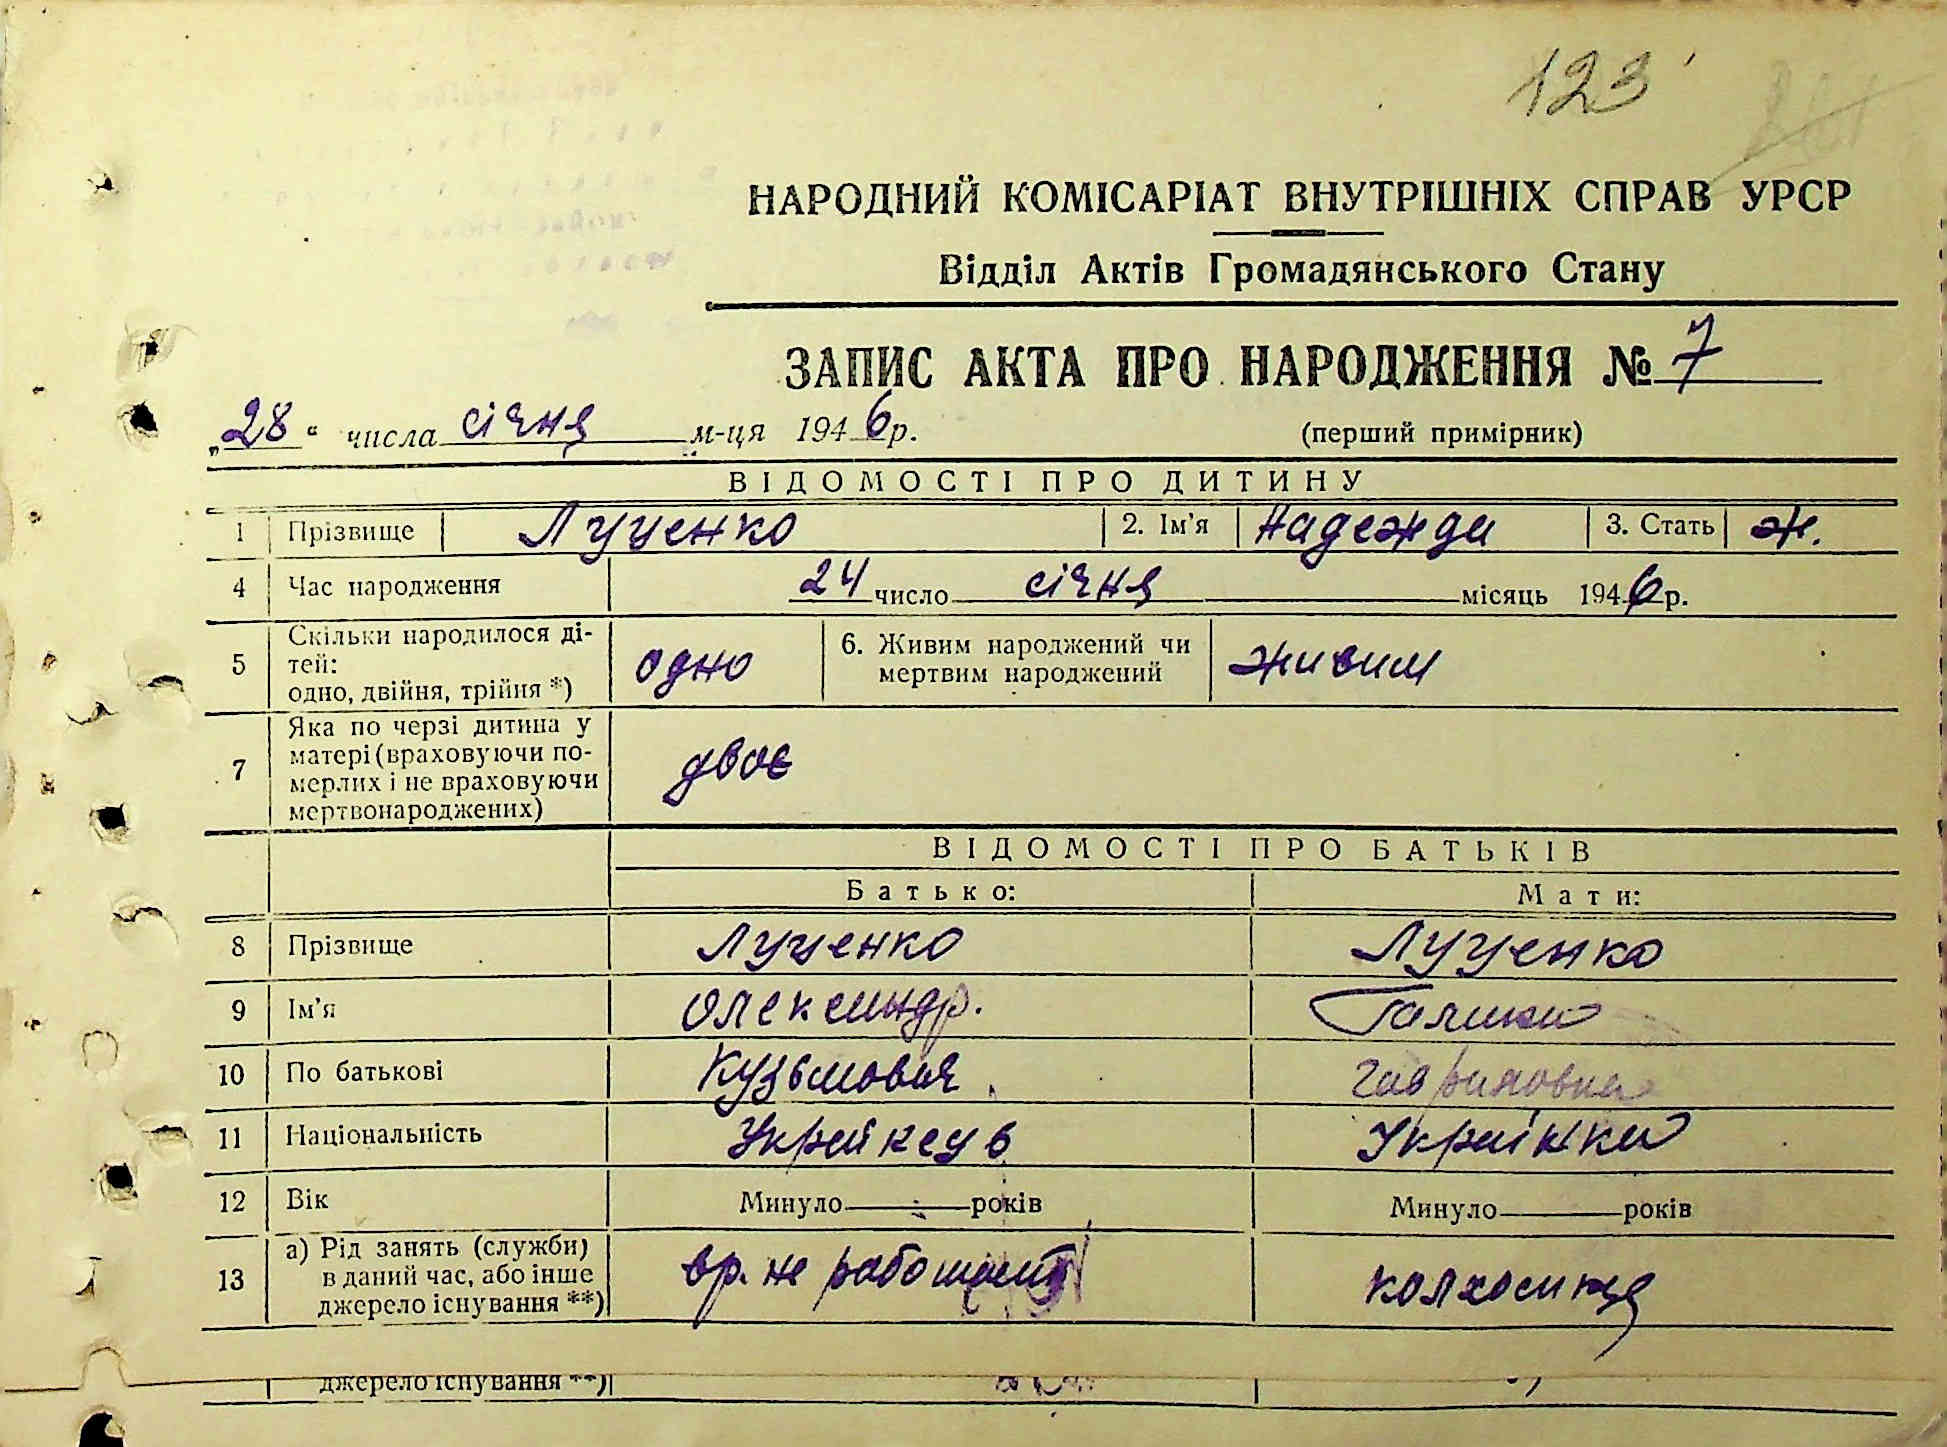 123
НАРОДНИЙ КОМІСАРІАТ ВНУТРІШНІХ СПРАВ УРСР
Відділ Актів Громадянського Стану
ЗАПИС АКТА ПРО НАРОДЖЕННЯ № 7
„28“ числа січня м-ця 1946 р.
(перший примірник)
ВІДОМОСТІ ПРО ДИТИНУ
1 Прізвище Луценко 2. Ім'я Надежда 3. Стать ж.
4 Час народження 24 число січня місяць 1946 р.
5 Скільки народилося ді-
тей:
одно, двійня, трійня *) одно 6. Живим народжений чи
мертвим народжений живим
7 Яка по черзі дитина у
матері (враховуючи по-
мерлих і не враховуючи
мертвонароджених) двоє
ВІДОМОСТІ ПРО БАТЬКІВ
Батько: Мати:
8 Прізвище Луценко Луценко
9 Ім'я Олександр. Галина
10 По батькові Кузьмович Гавриловна
11 Національність Українець Українка
12 Вік Минуло років Минуло років
13 а) Рід занять (служби)
в даний час, або інше
джерело існування **) вр. не работает колхосниця
джерело існування **)